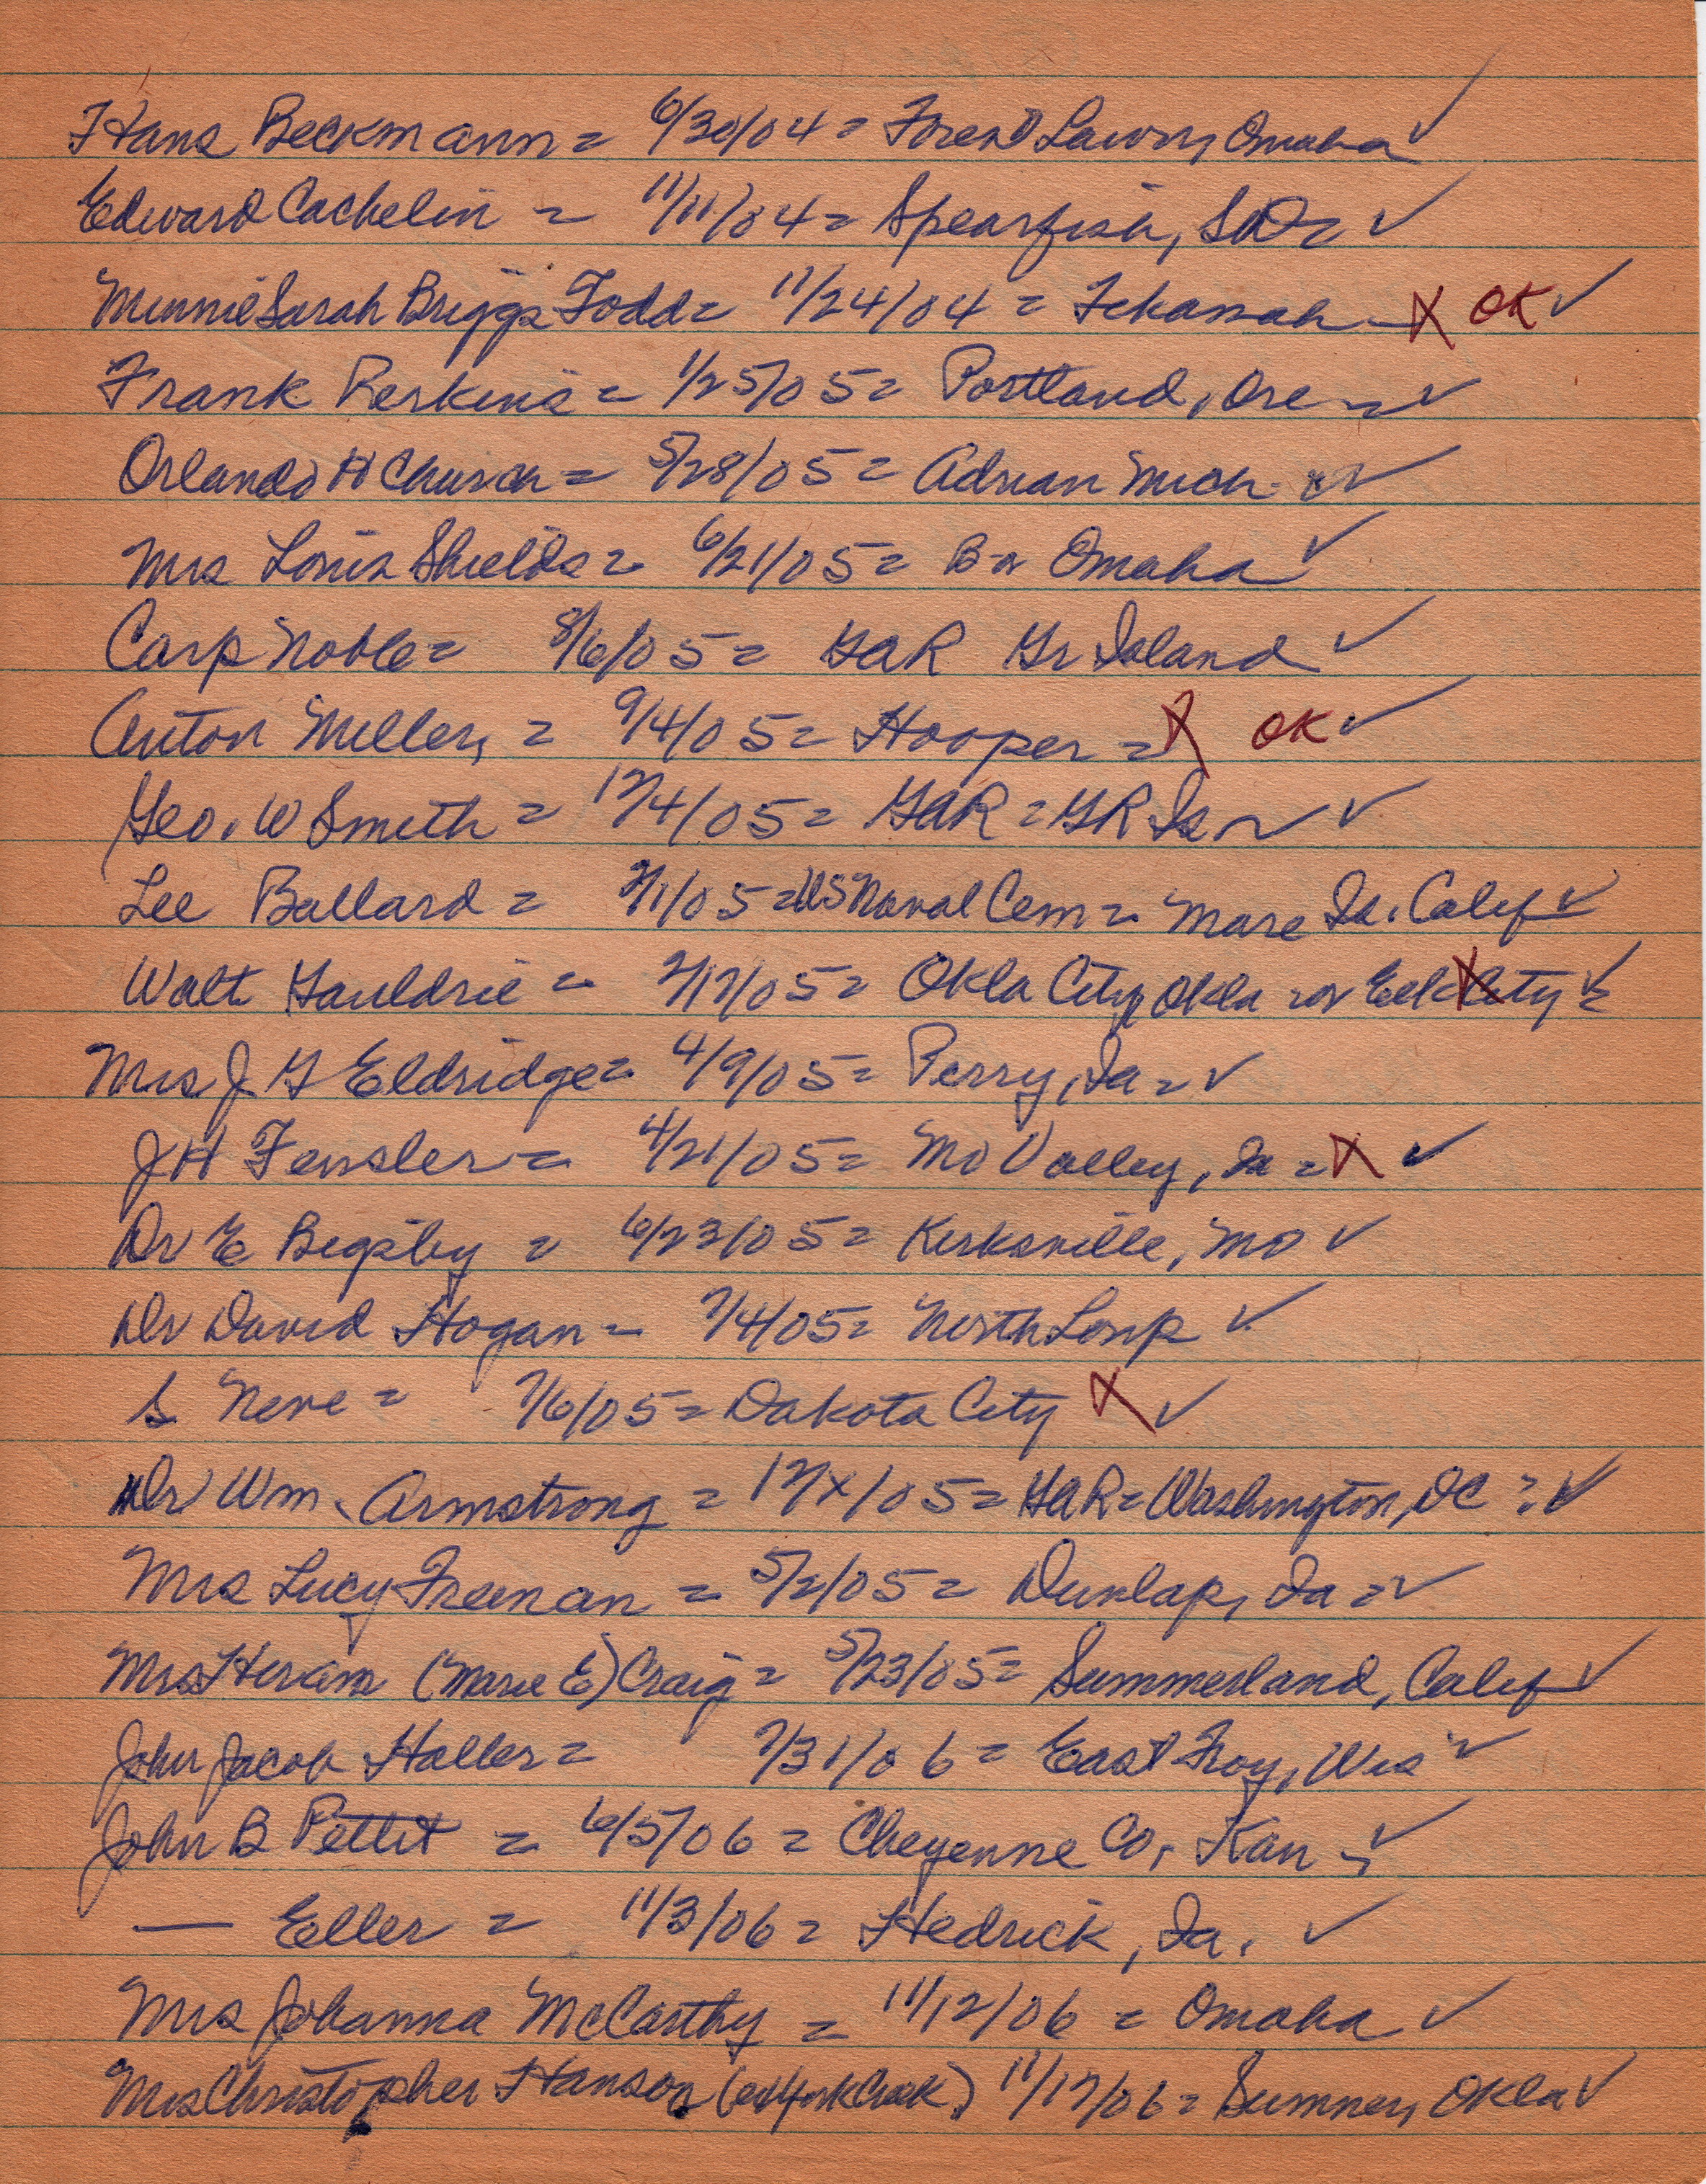 Hans Beckmann = 6/30/04 = Forest Lawn, Omaha ✓
Edward Cachelin = 11/11/04 = Spearfish, SD = ✓
Minnie Sarah Briggs Todd = 11/24/04 = Tekamah X OK ✓
Frank Perkins = 1/25/05 = Portland, Ore = ✓
Orlando H Church = 5/28/05 = Adrian Mich ✓
Mrs Louis Shields = 6/21/05 = Omaha ✓
Carp Noble = 8/6/05 = GAR Gr Island ✓
Anton Miller, = 9/4/05 = Hooper = X OK ✓
Geo. W Smith = 12/4/05 = GAR = GR Is ✓
Lee Ballard = /1/05 = US Naval Cem = Mare Is. Calif ✓
Walt Gauldrie = 2/17/05 = Okla City, Okla or Elk City ✓
Mrs J G Eldridge = 4/9/05 = Perry, Ia = ✓
JH Fensler = 4/21/05 = Mo Valley, Ia = X ✓
Dr E Bigsby = 6/23/05 = Kirksville, Mo ✓
Dr David Hogan = 7/4/05 = North Loup ✓
S Neve = 7/6/05 = Dakota City X ✓
Dr Wm. Armstrong = 12/x/05 = GAR = Washington, DC ✓
Mrs Lucy Freeman = 5/2/05 = Dunlap, Ia = ✓
Mrs Hiram (Marie E) Craig = 5/23/05 = Summerland, Calif ✓
John Jacob Haller = 7/31/06 = East Troy, Wis ✓
John B Pettit = 6/5/06 = Cheyenne Co, Kan ✓
— Eller = 11/3/06 = Hedrick, Ia. ✓
Mrs Johanna McCarthy = 11/12/06 = Omaha ✓
Mrs Christopher Hanson ( York Creek) 11/17/06 = Sumner, Okla ✓